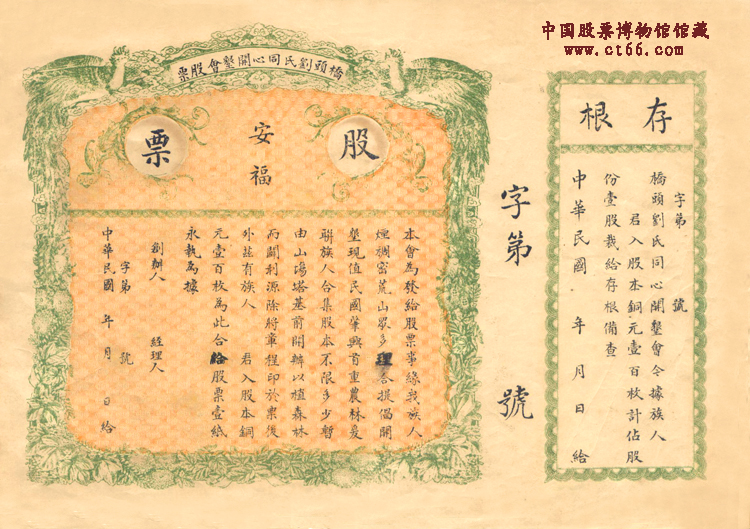 中国股票博物馆馆藏
www.ct66.com
橋頭劉氏同心開墾會股票
股票
安福
本會為發給股票事緣我族人
煙稠密荒山眾多理合提倡開
墾現值民國肇興首重農林爰
聯族人合集股本不限多少暫
由山塲塔基前開辦以植森林
而開利源除將章程印於票後
外茲有族人 君入股本銅
元壹百枚為此合給股票壹紙
永執為據
創辦人 經理人
字第 號
中華民國 年 月 日給
字第 號
存根
字第 號
橋頭劉氏同心開墾會今據族人
君入股本銅元壹百枚計佔股
份壹股裁給存根備查
中華民國 年 月 日 給